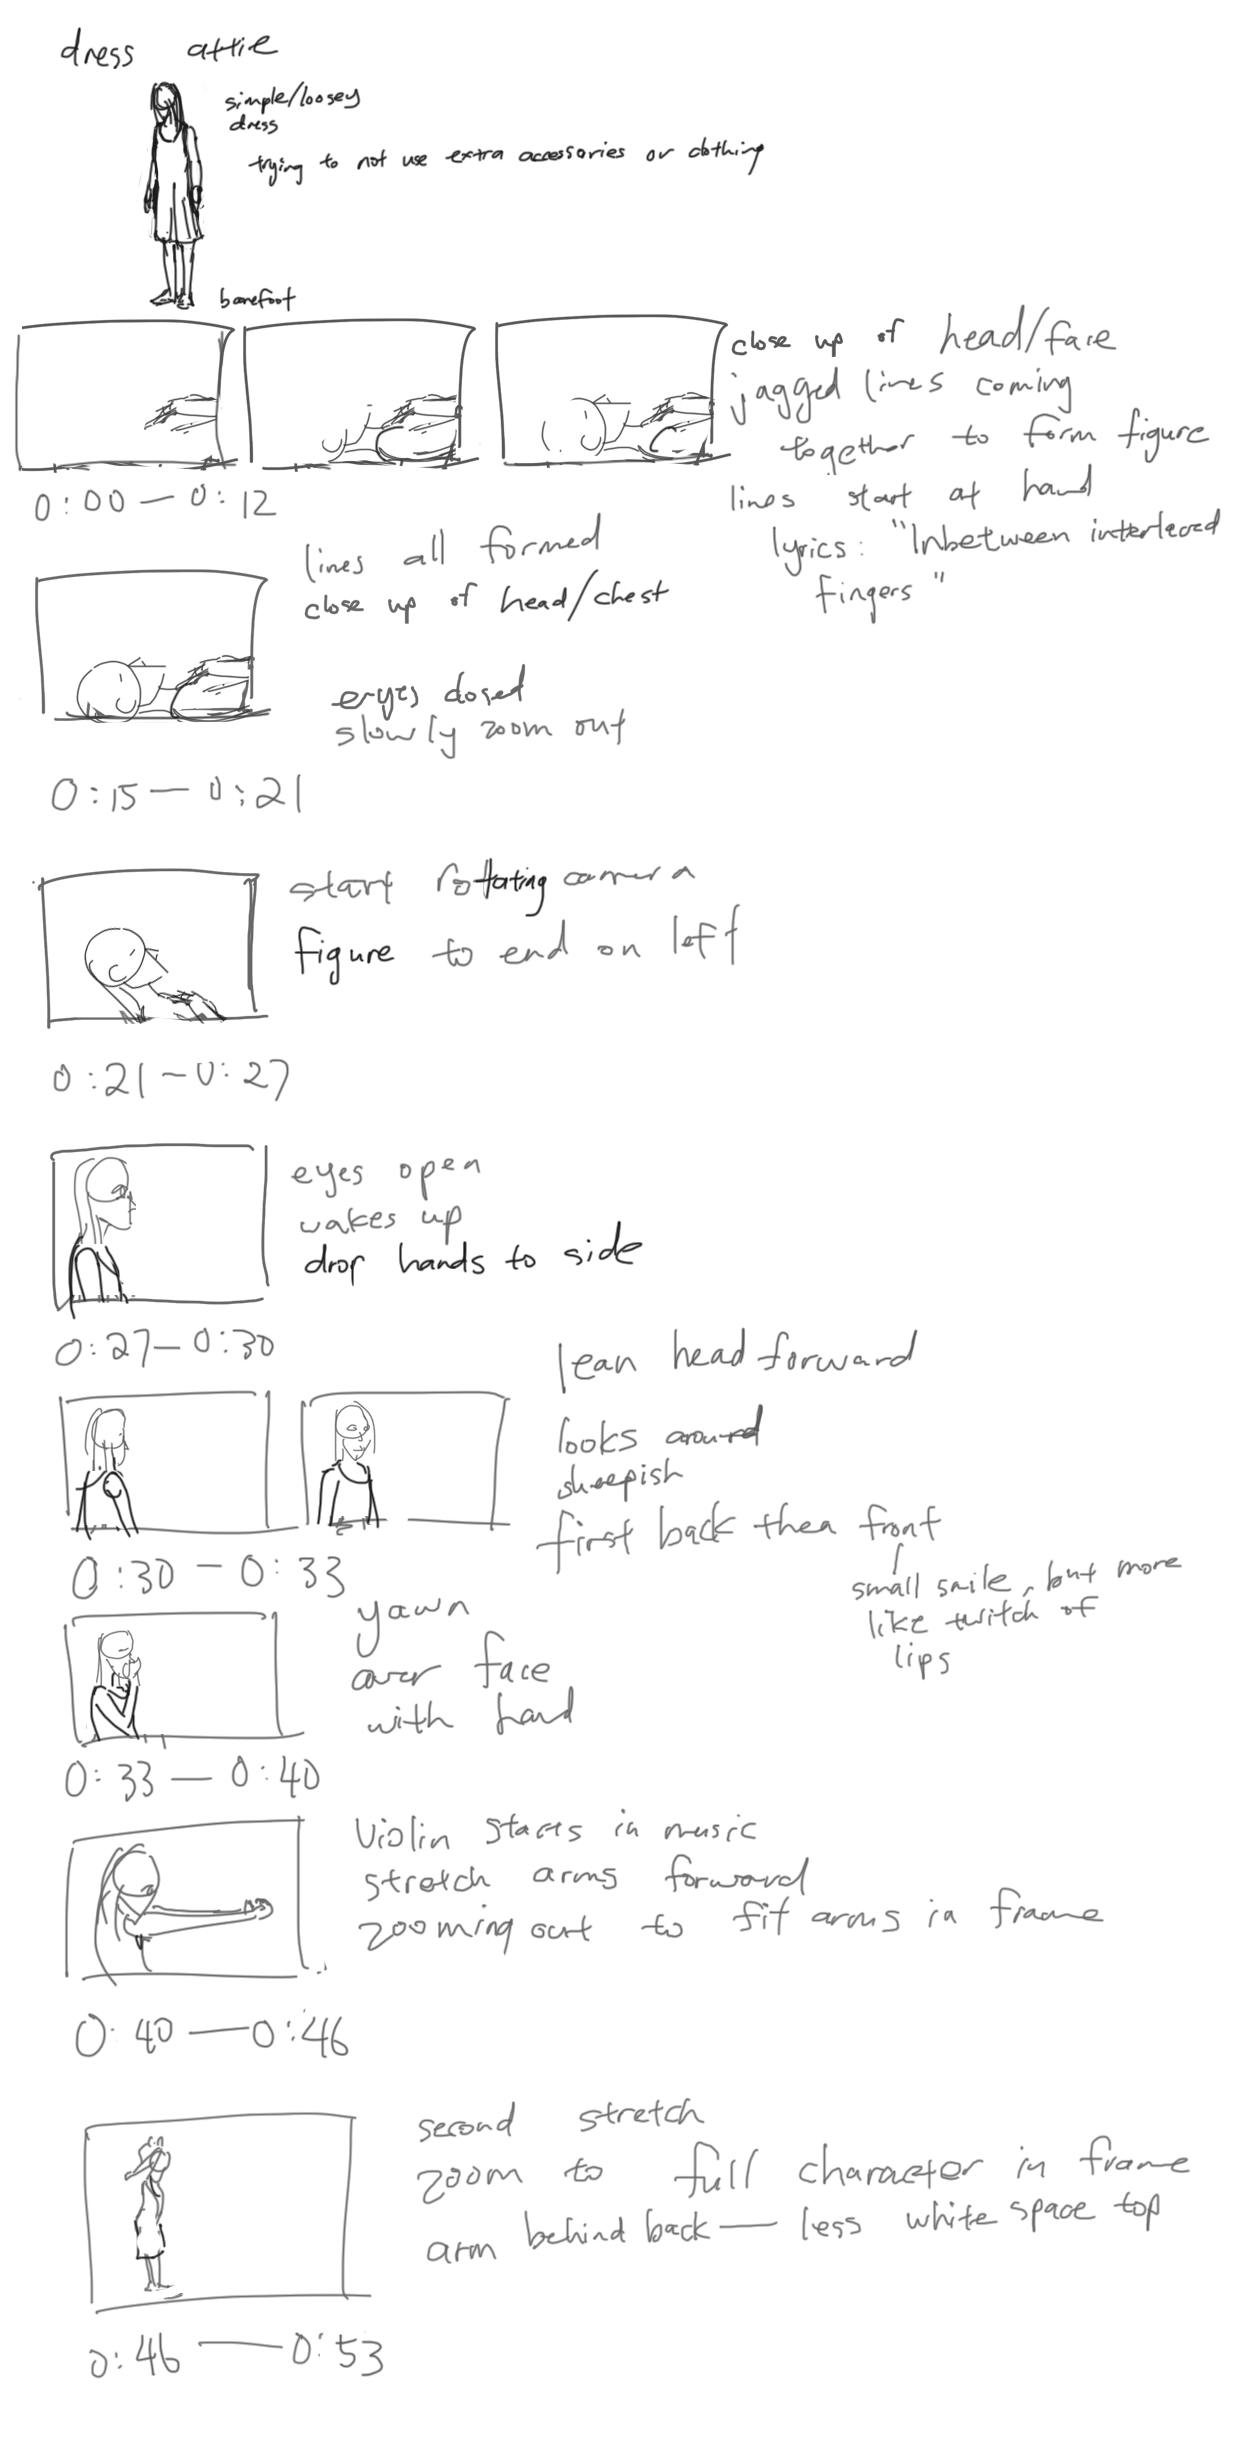 dress attie
simple/loosey
dress
trying to not use extra accessories or clothing
barefoot
close up of head/face
jagged lines coming
together to form figure
lines start at hand
lyrics: "Inbetween interlaced
fingers"
0:00 — 0:12
lines all formed
close up of head/chest
eryes closed
slowly zoom out
0:15 — 0:21
start rottating camera
figure to end on left
0:21 — 0:27
eyes open
wakes up
drop hands to side
0:27 — 0:30
lean head forward
looks around
sheepish
first back then front
small smile, but more
like twitch of
lips
0:30 — 0:33
yawn
over face
with hand
0:33 — 0:40
Violin starts in music
stretch arms forward
zooming out to fit arms in frame
0:40 — 0:46
second stretch
zoom to full character in frame
arm behind back — less white space top
0:46 — 0:53